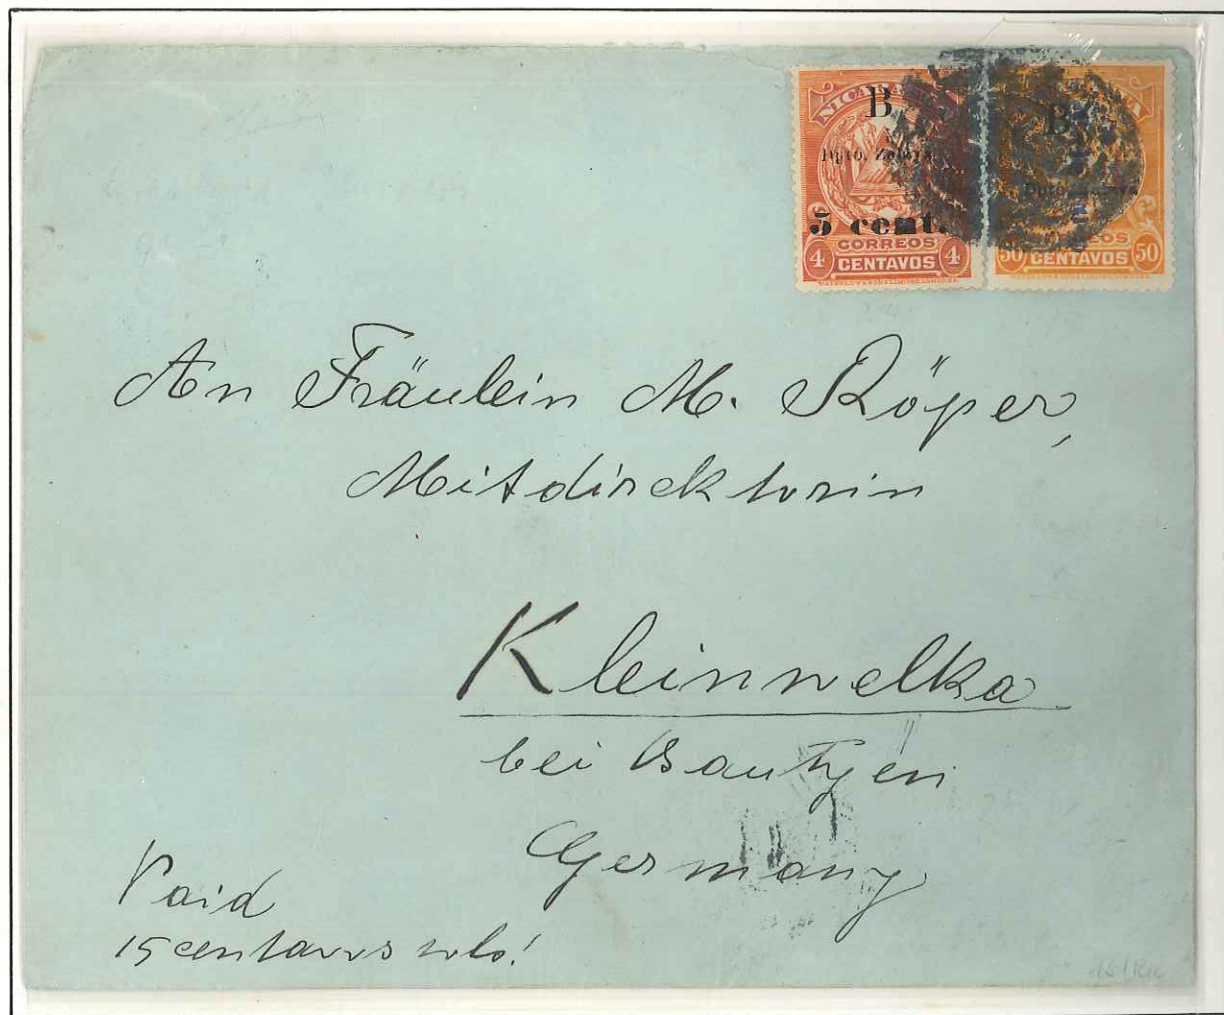 NICARAGUA
B
Dpto. Zelaya
5 cent.
CORREOS
4 CENTAVOS 4
WATERLOW & SONS LIMITED, LONDON.
B
Dpto. Zelaya
CORREOS
50 CENTAVOS 50
An Fräulein M. Röper,
Mitdirektorin
Kleinwelka
bei Bautzen
Germany
Paid
15 centavos